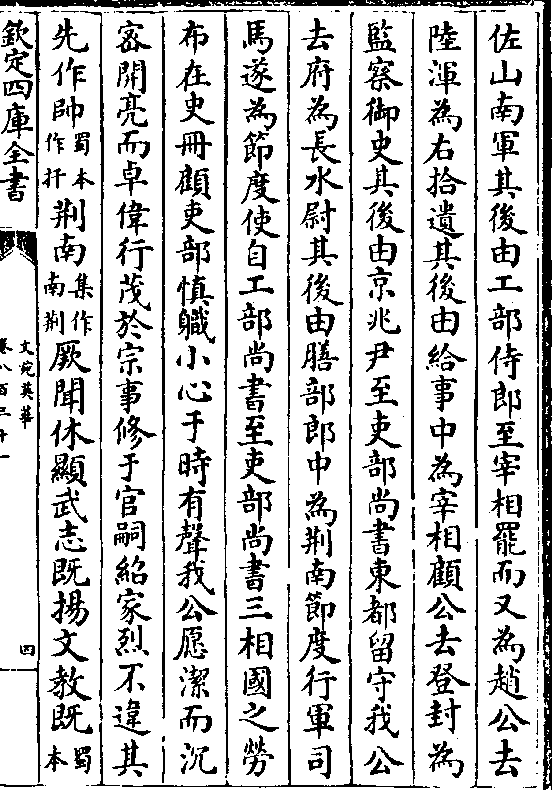 佐山南軍其後由工部侍郎至宰相罷而又為趙公去
陸渾為右拾遺其後由給事中為宰相顧公去登封為
監察御史其後由京兆尹至吏部尚書東都留守我公
去府為長水尉其後由膳部郎中為荆南節度行軍司
馬遂為節度使自工部尚書至吏部尚書三相國之勞
布在史冊顧吏部慎職小心于時有聲我公愿潔而沉
宻開亮而卓偉行茂於宗事修于官嗣紹家烈不違其
先作帥蜀本作扞荆南集作南荆厥聞休顯武志既揚文教既蜀本
欽定四庫全書
文苑英華
四